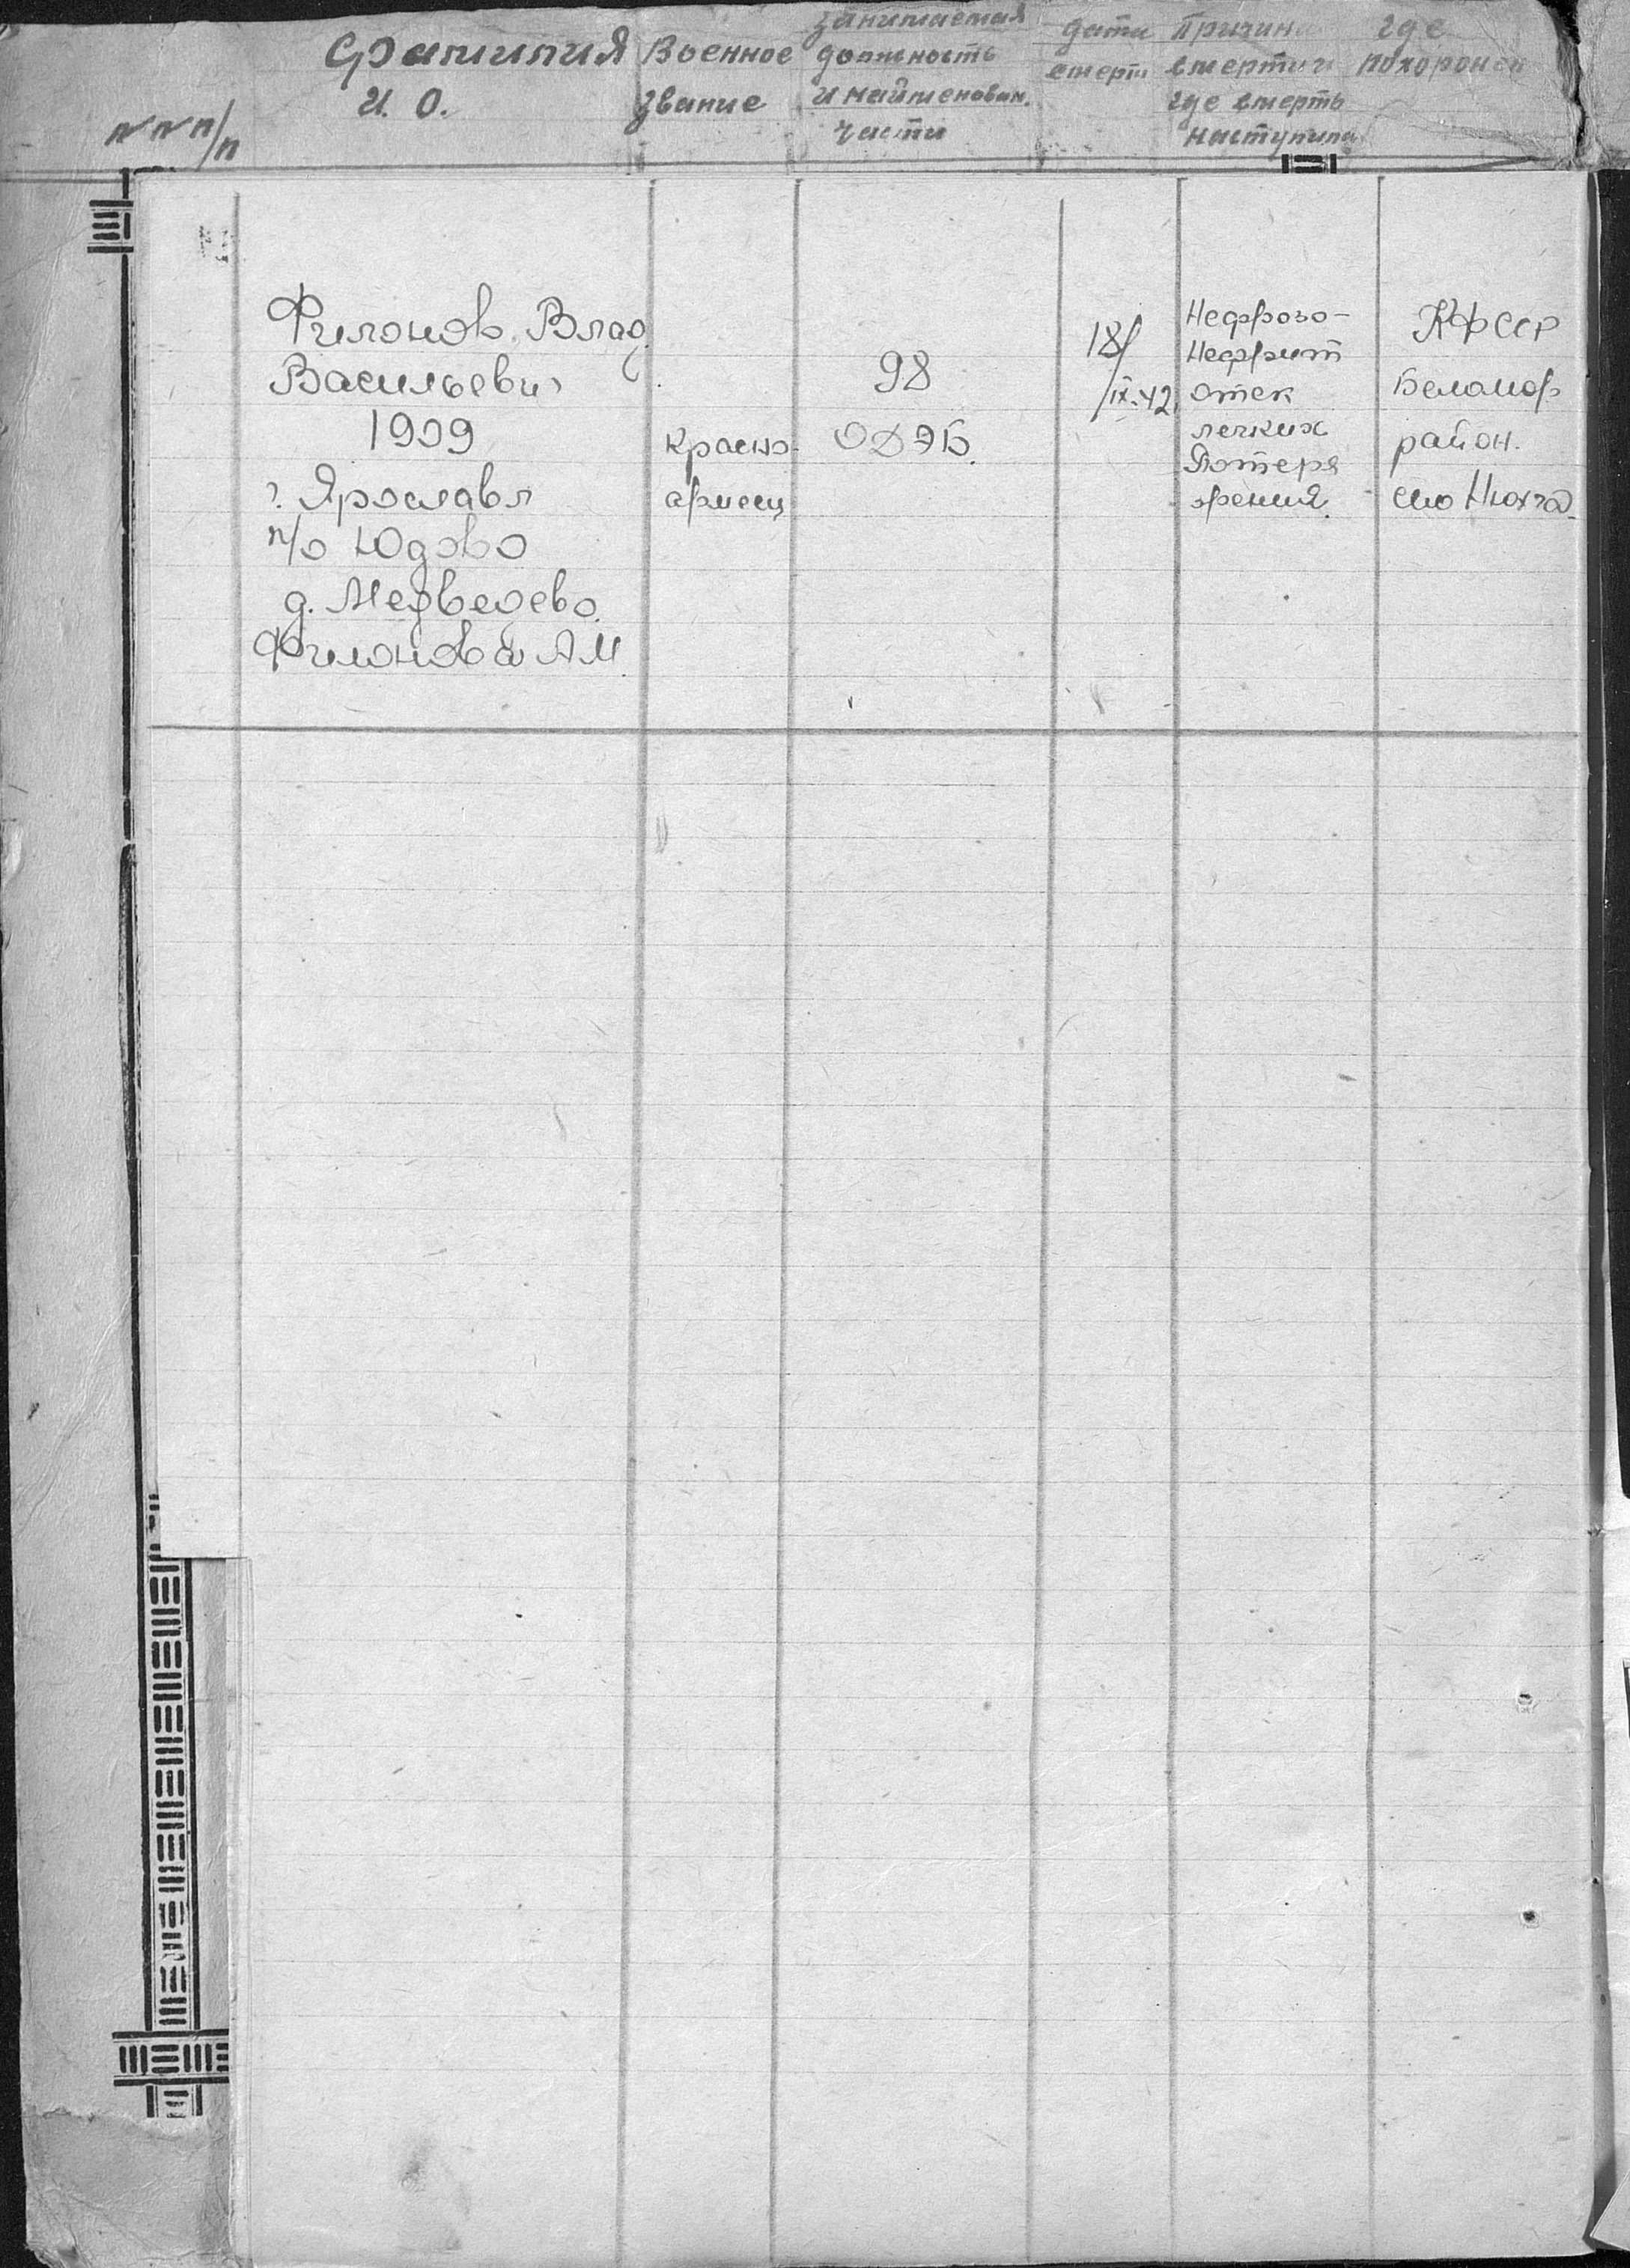 №№ п/п
Фамилия
И. О.
Военное
звание
Занимаемая
должность
и найменован.
части
дата
смерти
Причина
смерти и
где смерть
наступила
где
похоронен
Филонов Влад.
Васильевич
1909
г. Ярославл
п/о Юдово
д. Медведево.
Филонова А М
Красно-
армеец
98
ОДЭБ.
18/
/IX-42.
Нефрозо-
Нефрит
отек
легких
Потеря
зрения.
КФССР
Беломор
район.
село Нюхча.